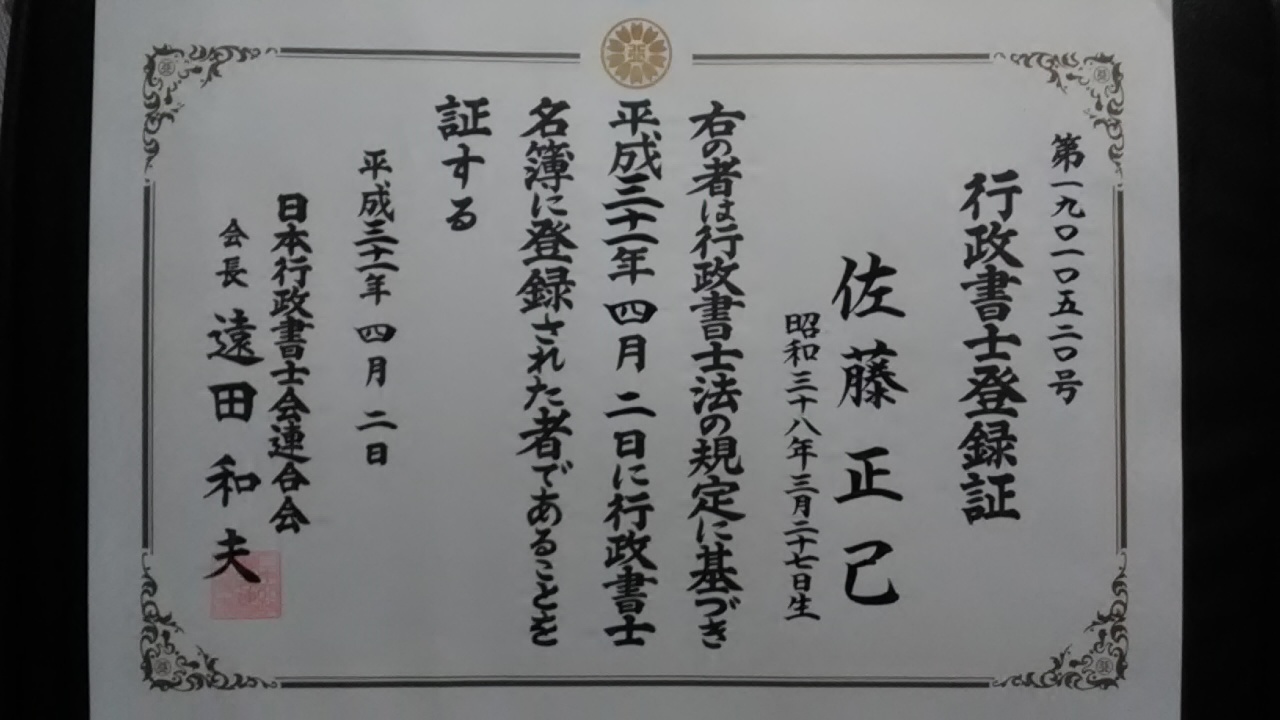 第一九〇一〇五二〇号
行政書士登録証
佐藤正己
昭和三十八年三月二十七日生
右の者は行政書士法の規定に基づき
平成三十一年四月二日に行政書士
名簿に登録された者であることを
証する
平成三十一年四月二日
日本行政書士会連合会
会長 遠田和夫